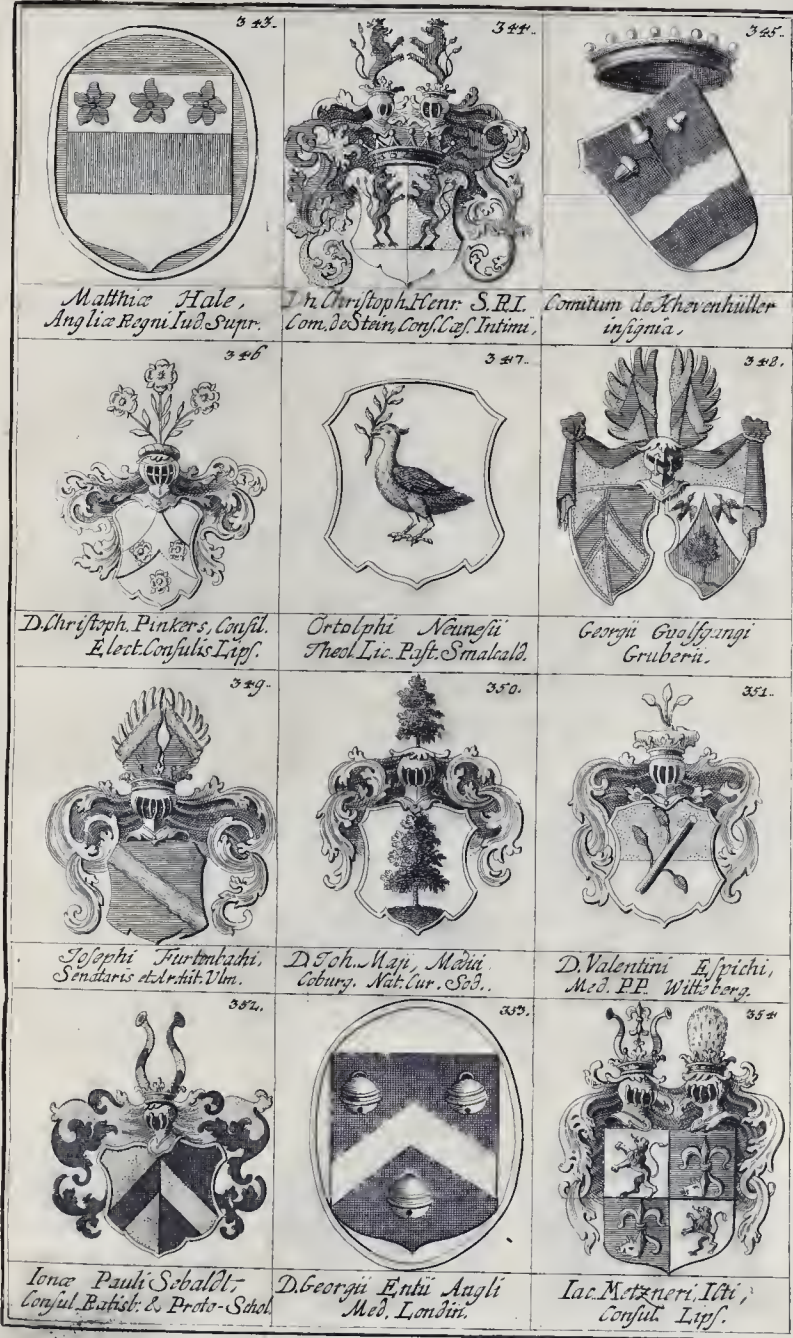 343.
Matthiæ Hale,
Angliæ Regni Iud. Supr.
344.
Dn. Christoph. Henr. S.R.I.
Com. de Stein, Cons. Cæs. Intimi,
345.
Comitum de Khevenhüller
insignia,
346
D. Christoph. Pinkers, Consil.
Elect. Consulis Lips.
347.
Ortolphi Neunesii
Theol. Lic. Past. Smalcald.
348.
Georgii Guolfgangi
Gruberii.
349.
Josephi Furtenbachi,
Senatoris et Archit. Ulm.
350.
D. Joh. Maji, Medici
Coburg. Nat. Cur. Sod.
351.
D. Valentini Espichi,
Med. P.P. Witteberg.
352.
Ionæ Pauli Sebaldt,
Consul Ratisb. & Proto-Schol.
353.
D. Georgii Entii Angli
Med. Londin.
354
Iac. Metzneri, Icti,
Consul. Lips.